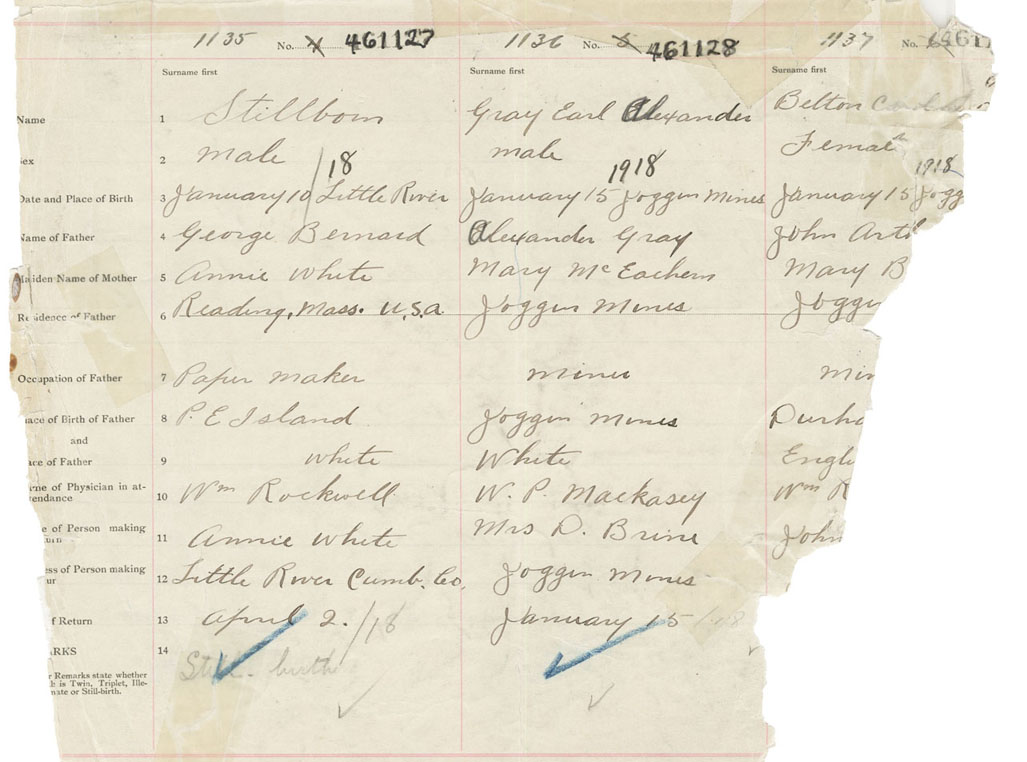 1135 No. 461127 1136 No. 5 461128 1137 No.
Surname first Surname first Surname first
Name 1 Stillborn Gray Earl Alexander Belton
2 Male male Female
Date and Place of Birth 3 January 10/18 Little River January 15 1918 Joggin Mines January 15 1918 Jogg
Name of Father 4 George Bernard Alexander Gray John Art
Maiden Name of Mother 5 Annie White Mary McEachern Mary B
Residence of Father 6 Reading, Mass. U.S.a. Joggin Mines Joggi
Occupation of Father 7 Paper maker miner Min
ace of Birth of Father 8 P. E Island Joggin Mines Durha
and
ace of Father 9 white White Engli
me of Physician in at-
tendance 10 Wm Rockwell W. P. Mackasey Wm R
e of Person making
urn 11 Annie White Mrs D. Brine John
ess of Person making
ur 12 Little River Cumb. Co. Joggin Mines
f Return 13 April 2./18 January 15/18
ARKS 14 Still birth
r Remarks state whether
h is Twin, Triplet, Ille-
mate or Still-birth.